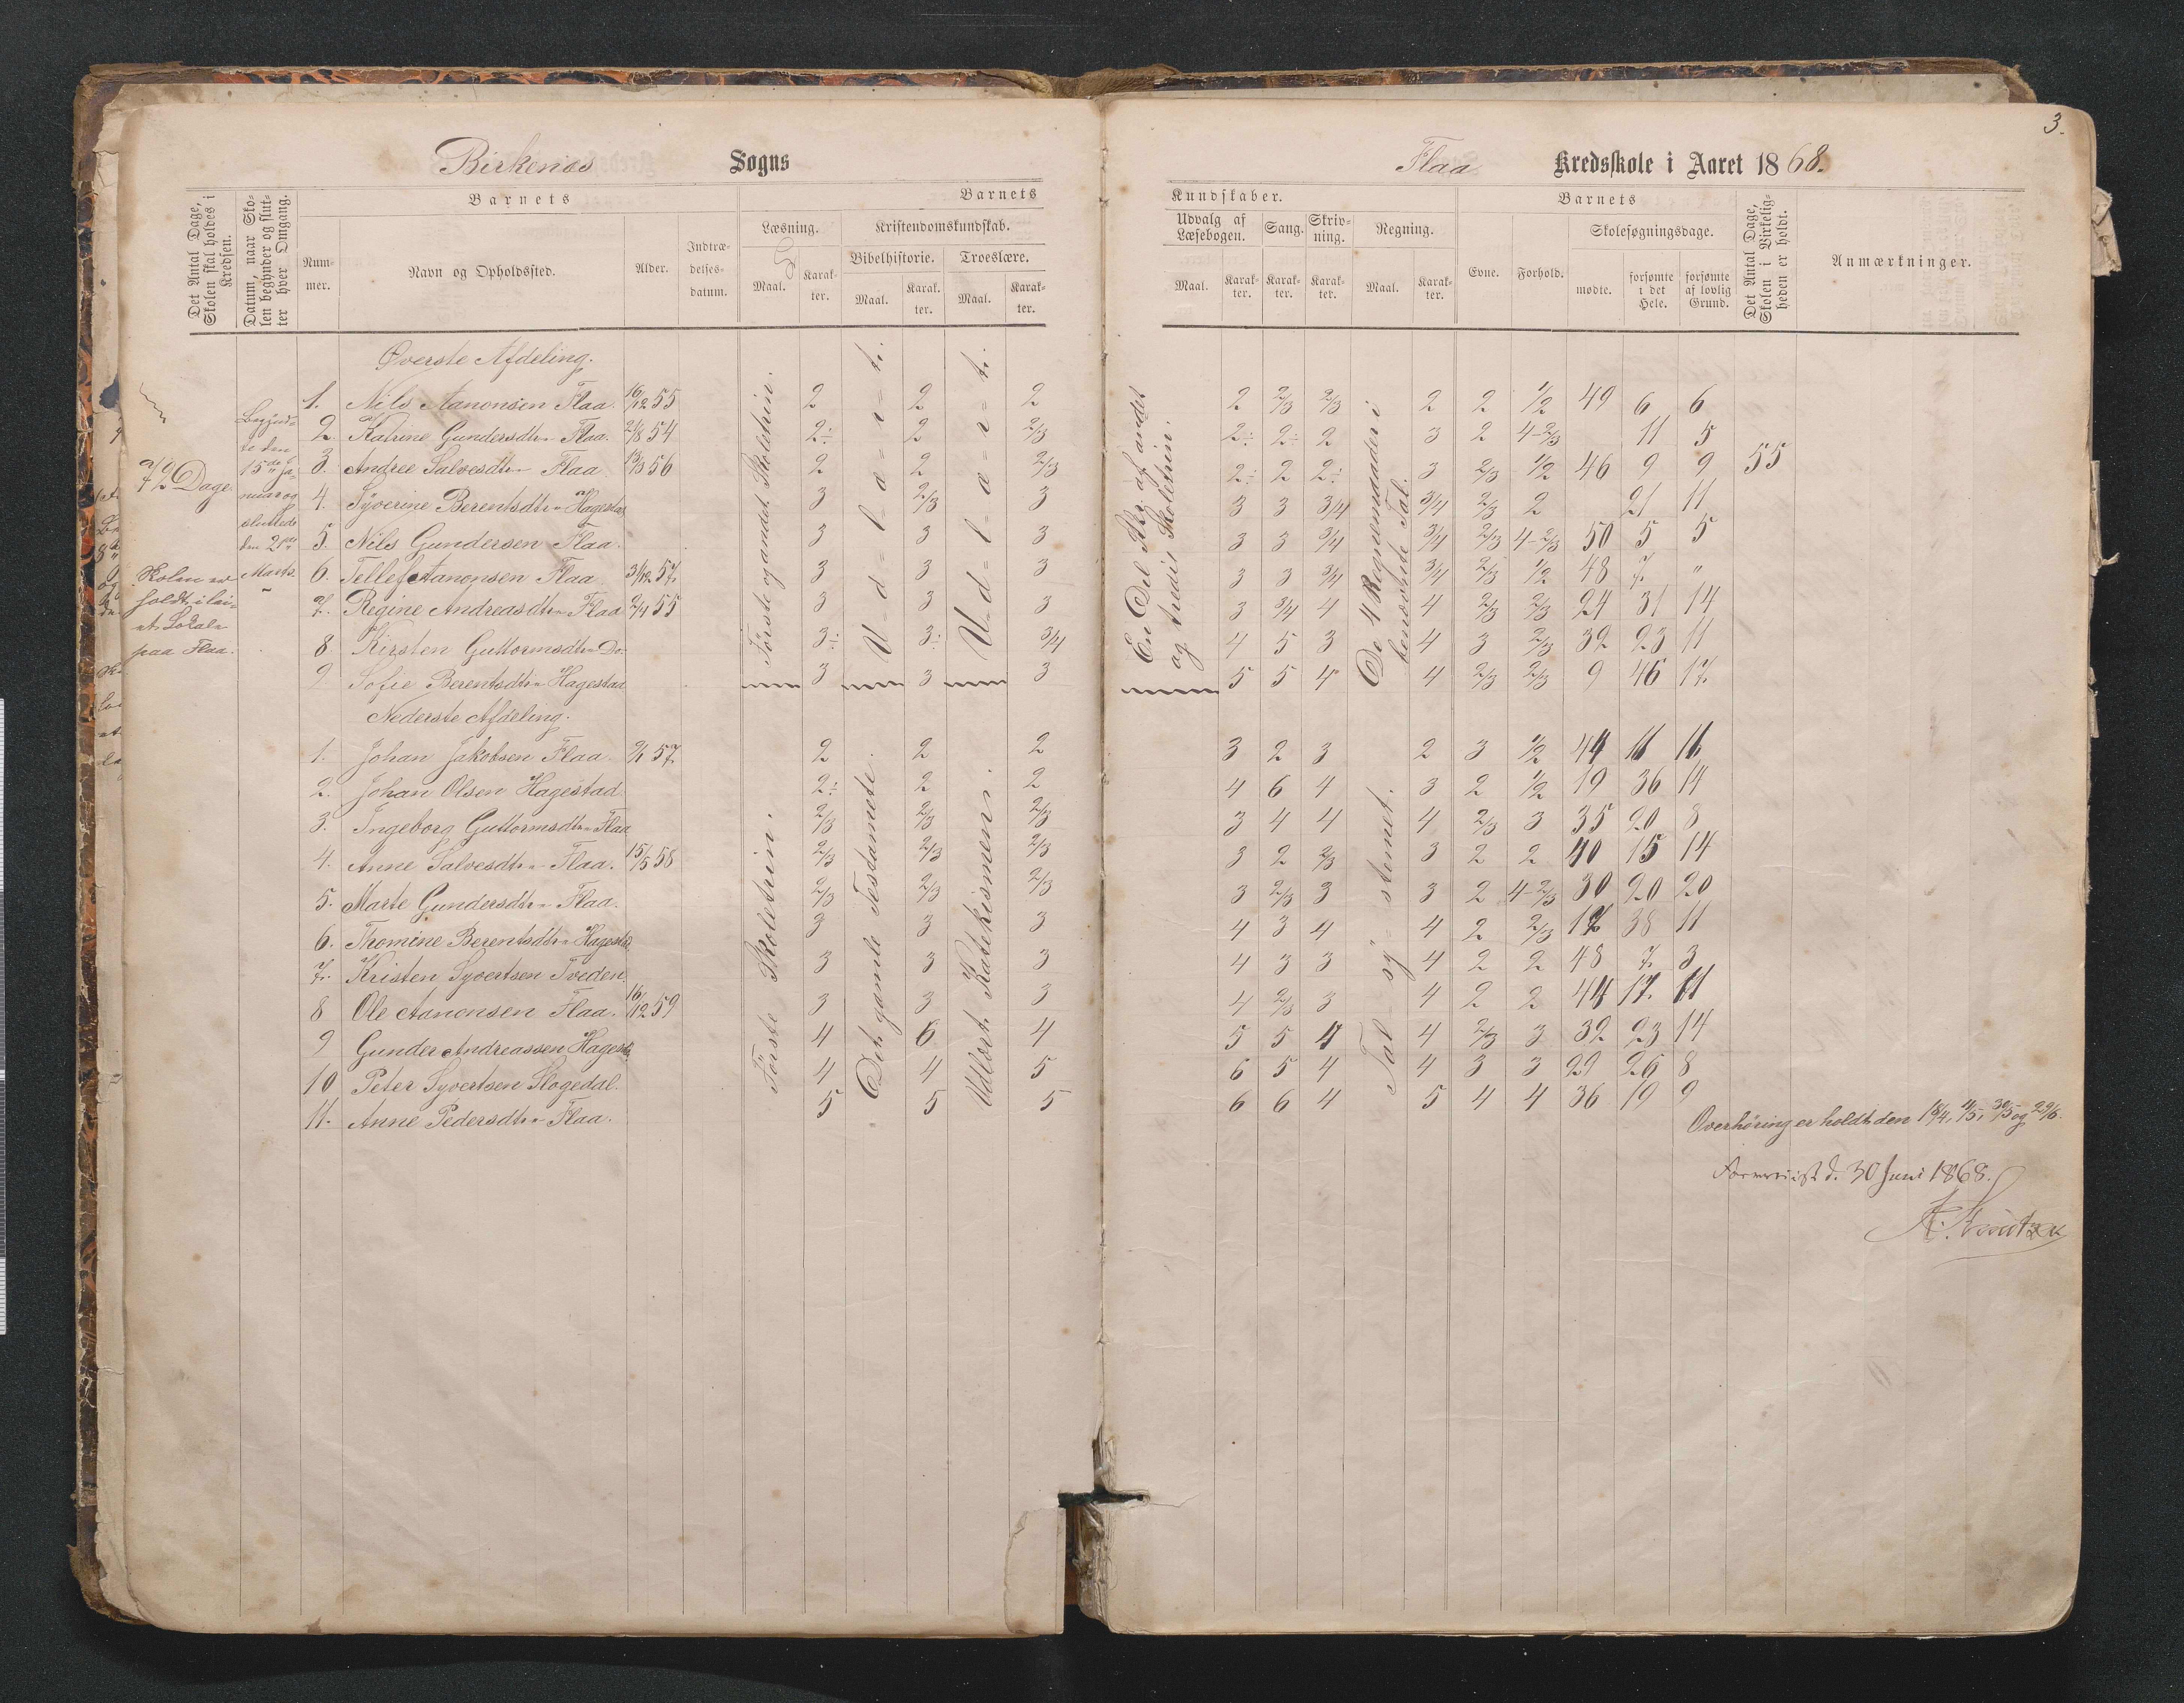 3.
Birkenes Sogns
Flaa Kredsskole i Aaret 1868.
Det Antal Dage, Skolen skal holdes i Kredsen.
Datum, naar Skolen begynder og slutter hver Omgang.
Barnets
Nummer.
Navn og Opholdssted.
Alder.
Indtrædelsesdatum.
Barnets
Læsning.
Maal.
Karakter.
Kristendomskundskab.
Bibelhistorie.
Maal.
Karakter.
Troeslære.
Maal.
Karakter.
Kundskaber.
Udvalg af Læsebogen.
Maal.
Karakter.
Sang.
Karakter.
Skrivning.
Karakter.
Regning.
Maal.
Karakter.
Barnets
Evne.
Forhold.
Skolesøgningsdage.
mødte.
forsømte i det Hele.
forsømte af lovlig Grund.
Det Antal Dage, Skolen i Virkeligheden er holdt.
Anmærkninger.
72 Dage
Skolen er
holdt i lei-
et Lokale
paa Flaa.
Begynd-
te den
15de Ja-
nuar og
sluttede
den 21de
Marts.
Øverste Afdeling.
1. Nils Aanonsen Flaa. 16/12 55 2 2 2 2 2/3 2/3 2 2 1/2 49 6 6
2. Katrine Gundersdtr. Flaa. 21/8 54 2÷ 2 2/3 2÷ 2÷ 2 3 2 4-2/3 11 5
3. Andree Salvesdtr. Flaa 13/3 56 2 2 2/3 2÷ 2 2÷ 3 2/3 1/2 46 9 9 55
4. Syverine Berentsdtr. Hagestad 3 2/3 3 3 3 3/4 3/4 2/3 2 21 11
5. Nils Gundersen Flaa. 3 3 3 3 3 3/4 3/4 2/3 4-2/3 50 5 5
6. Tellef Aanonsen Flaa 3/12 57. 3 3 3 3 3 3/4 3/4 2/3 1/2 48 7. "
7. Regine Andreasdtr. Flaa 2/4 55 3 3 3 3 3/4 4 4 2/3 2/3 24 31 14
8. Kirsten Guttormsdtr. Do. 3÷ 3÷ 3/4 4 5 3 4 3 2/3 32 23 11
9 Sofie Berentsdtr. Hagestad 3 3 3 5 5 4 4 2/3 2/3 9 46 17.
Første og andet Skoletrin.
U=d=l=æ=r=t.
U=d=l=æ=r=t.
En Del Stkr. af andet
og tredie Skoletrin.
De 4 Regnemaader i
benævnte Tal.
Nederste Afdeling.
1. Johan Jakobsen Flaa. 2/1 57. 2 2 2 3 2 3 2 3 1/2 44 11 11
2. Johan Olsen Hagestad 2÷ 2 2 4 6 4 3 2 1/2 19 36 14
3. Ingeborg Guttormsdtr. Flaa 2/3 2/3 2/3 3 4 4 4 2/3 3 35 20 8
4. Anne Salvesdtr. Flaa. 15/5 58 2/3 2/3 2/3 3 2 2/3 3 2 2 40 15 14
5. Marte Gundersdtr. Flaa. 2/3 2/3 2/3 3 2/3 3 3 2 4-2/3 30 20 20
6. Thomine Berentsdtr. Hagestd. 3 3 3 4 3 4 4 2 2/3 17 38 11
7. Kristen Syvertsen Tveden. 3 3 3 4 3 3 4 2 2 48 7. 3
8 Ole Aanonsen Flaa. 16/12 59 3 3 3 4 2/3 3 4 2 2 44 17. 11
9 Gunder Andreassen Hagestd. 4 6 4 5 5 4 4 2/3 3 32 23 14
10 Peter Syvertsen Slogedal. 4 4 5 6 5 4 4 3 3 29 26 8
11. Anne Pedersdtr. Flaa. 5 5 5 6 6 4 5 4 4 36 19 9
Første Skoletrin.
Det gamle Testamente.
Udlært Katekismen.
Tal=sy=stemet.
Overhøring er holdt den 18/4, 4/5, 30/5 og 29/6.
d. 30 Juni 1868.